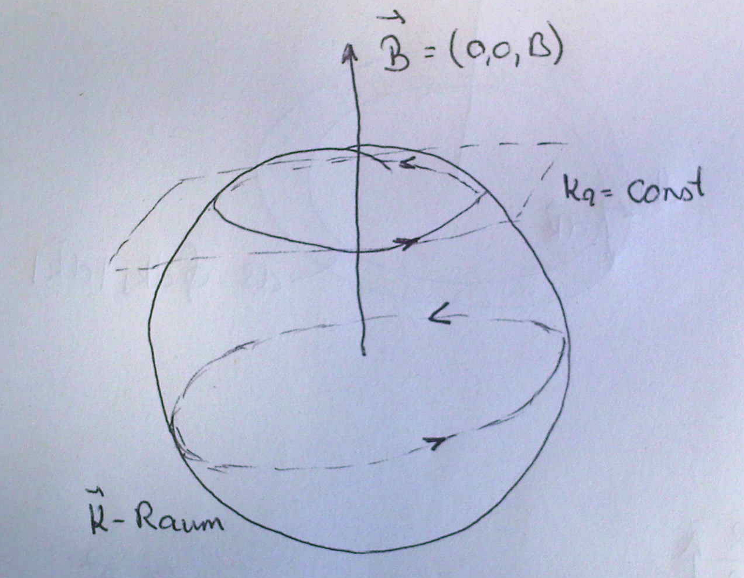 B⃗ = (0,0,B)
k₂ = const
k⃗-Raum